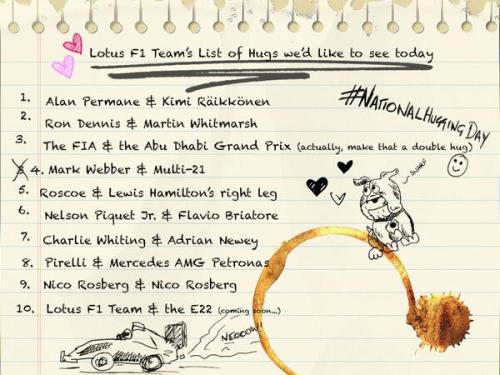 Lotus F1 Team's List of Hugs we'd like to see today
#NATIONALHUGGING DAY
1. Alan Permane & Kimi Räikkönen
2. Ron Dennis & Martin Whitmarsh
3. The FIA & the Abu Dhabi Grand Prix (actually, make that a double hug)
4. Mark Webber & Multi-21
5. Roscoe & Lewis Hamilton's right leg
6. Nelson Piquet Jr. & Flavio Briatore
7. Charlie Whiting & Adrian Newey
8. Pirelli & Mercedes AMG Petronas
9. Nico Rosberg & Nico Rosberg
10. Lotus F1 Team & the E22 (coming soon...)
NEOOOW!